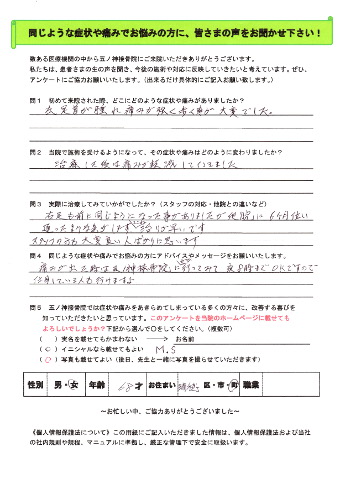 同じような症状や痛みでお悩みの方に、皆さまの声をお聞かせ下さい！
数ある医療機関の中から五ノ神接骨院にご来院いただきありがとうございます。
私たちは、患者さまの生の声を聞き、今後の施術や対応に反映していきたいと考えています。ぜひ、
アンケートにご協力お願いいたします。（出来るだけ具体的にご記入お願い致します。）
問１ 初めて来院された時、どこにどのような症状や痛みがありましたか？
左足首が腫れ痛みが強く歩く事が大変でした。
問２ 当院で施術を受けるようになって、その症状や痛みはどのように変わりましたか？
治療した後は痛みが軽減していきました
問３ 実際に治療してみていかがでしたか？（スタッフの対応・他院との違いなど）
右足も前に同じようになった事がありましたが他院に6か月位
通ったまり
治りが早いです
スタッフの方も大変良い人ばかりに思います
問４ 同じような症状や痛みでお悩みの方にアドバイスやメッセージをお願いいたします。
痛みが出た時は五ノ神接骨院に行ってみて
問５ 五ノ神接骨院では症状や痛みをあきらめてしまっている多くの方々に、改善する喜びを
知っていただきたいと思っています。このアンケートを当院のホームページに載せても
よろしいでしょうか？下記から選んで○をしてください。（複数可）
（ ）実名を載せてもかまわない → お名前
（○）イニシャルなら載せてもよい M.S
（○）写真も載せてよい（後日、先生と一緒に写真を撮らせていただきます）
性別 男・女 年齢 68才 お住まい 瑞穂 区・市・町 職業
～お忙しい中、ご協力ありがとうございました～
《個人情報保護法について》この用紙にご記入いただきました情報は、個人情報保護法および当社
の社内規則や規程、マニュアルに準拠し、厳正な管理下で安全に取扱います。